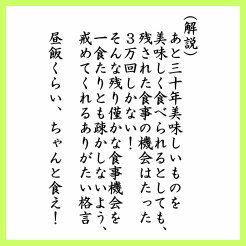 （解説）
あと三十年美味しいものを
美味しく食べられるとしても、
残された食事の機会はたった
３万回しかない！
そんな残り僅かな食事機会を
一食たりとも疎かしないよう、
戒めてくれるありがたい格言
昼飯くらい、ちゃんと食え！